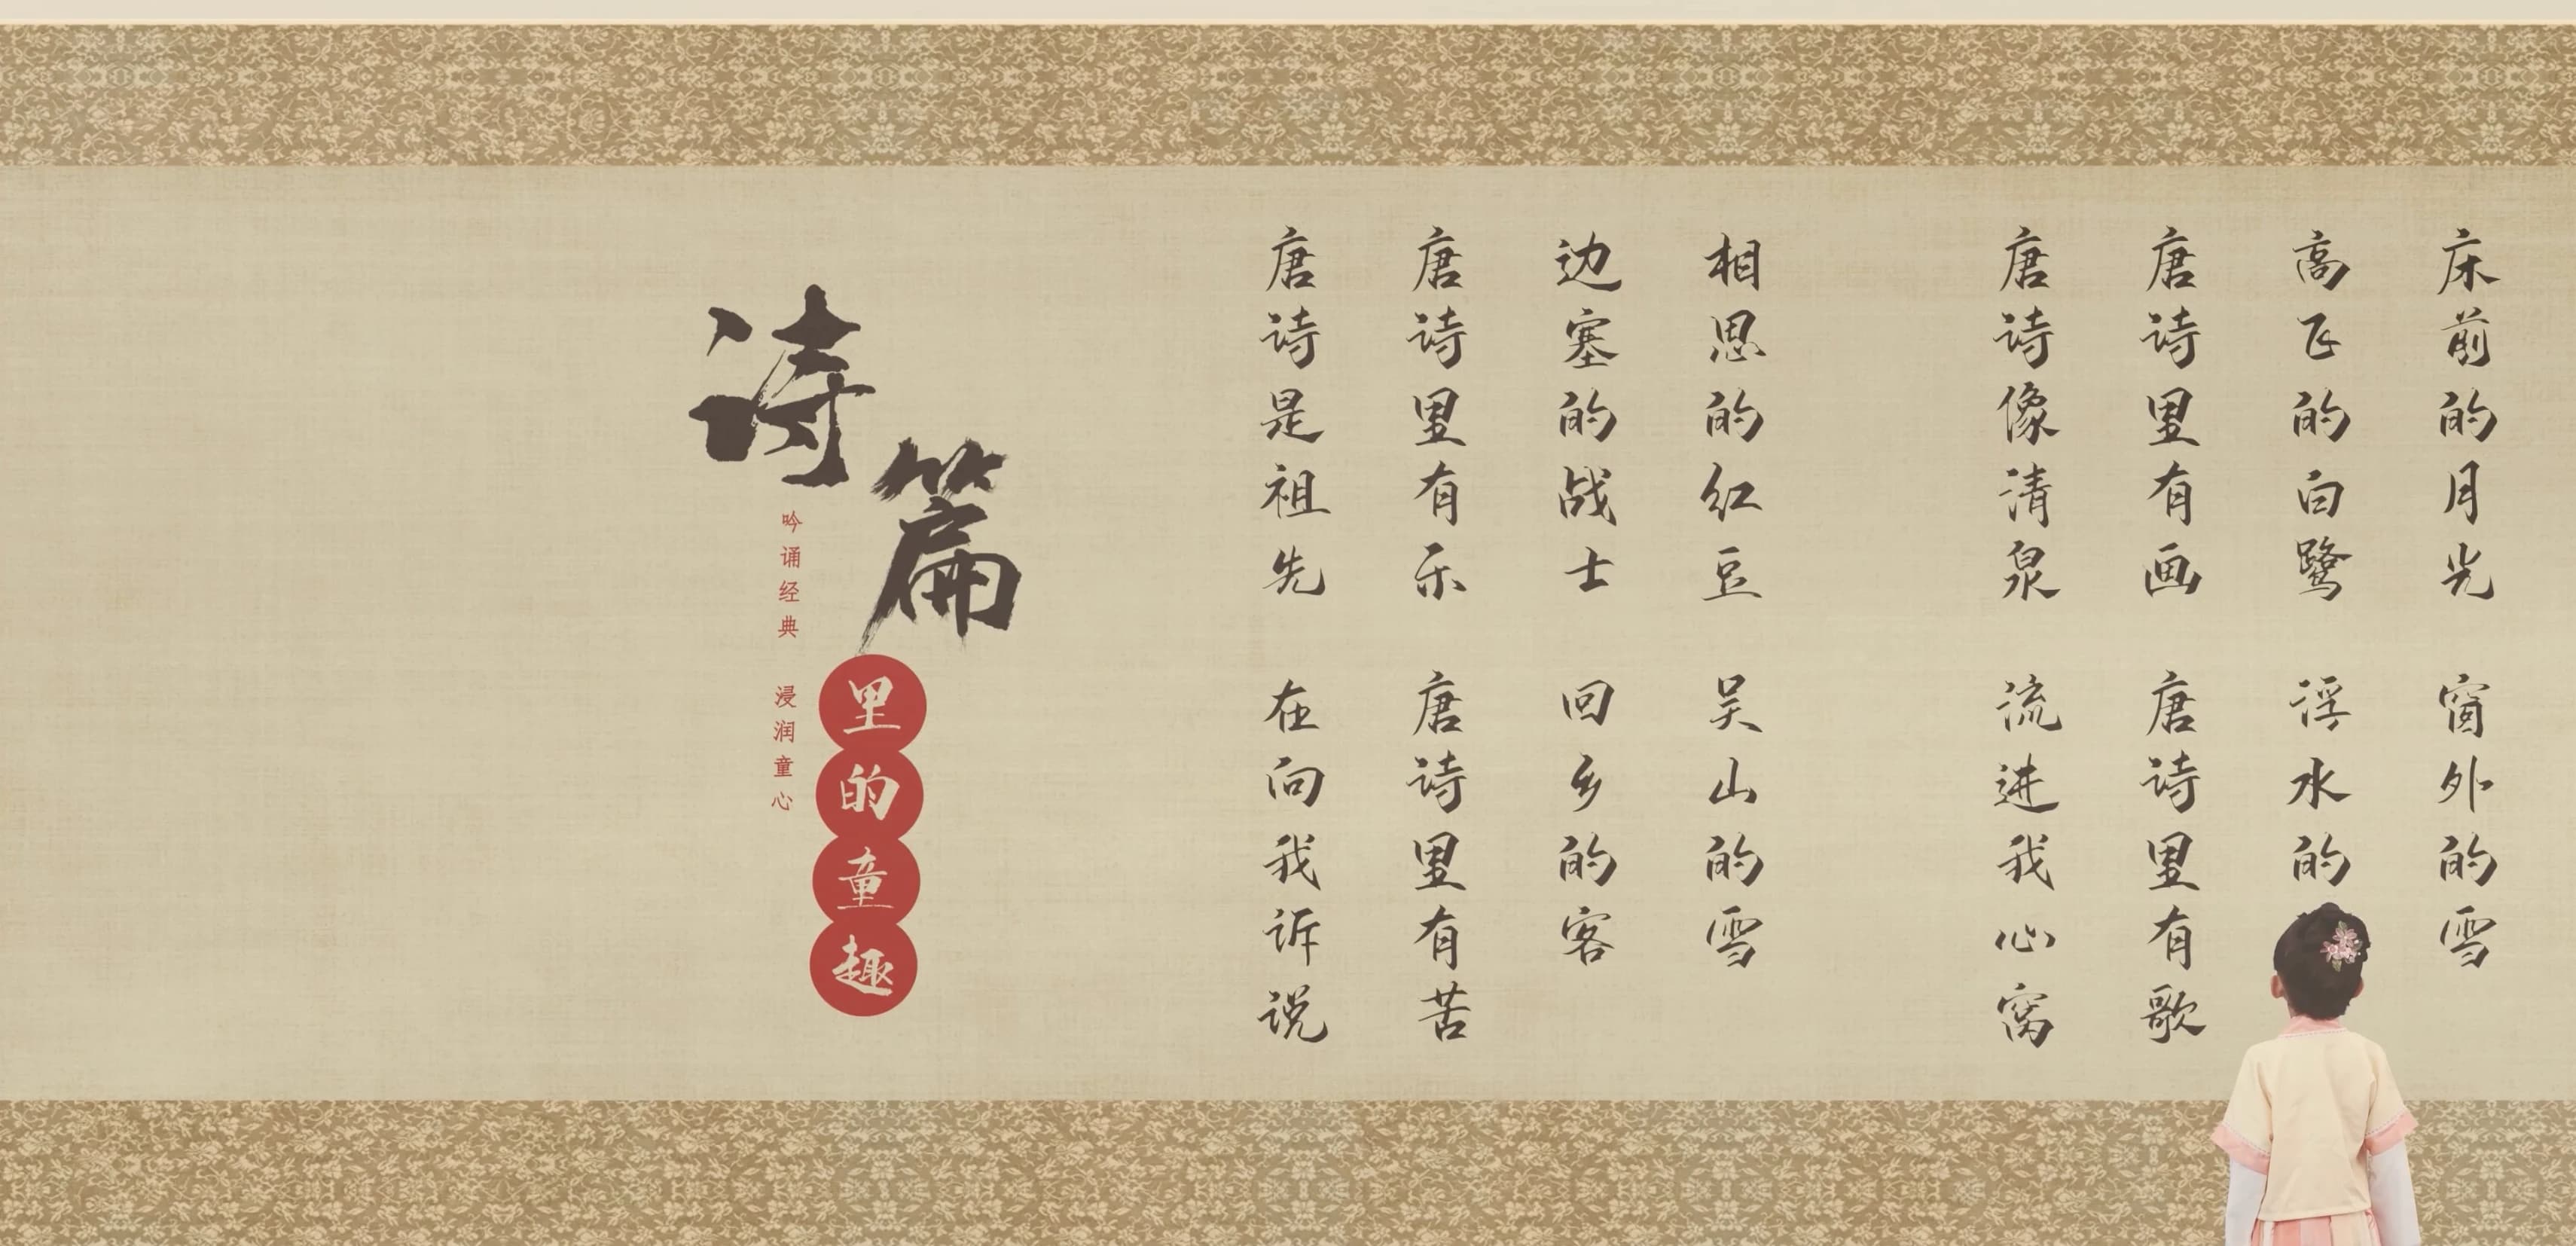 床前的月光 窗外的雪
高飞的白鹭 浮水的
唐诗里有画 唐诗里有歌
唐诗像清泉 流进我心窝
相思的红豆 吴山的雪
边塞的战士 回乡的客
唐诗里有乐 唐诗里有苦
唐诗是祖先 在向我诉说
诗篇
里的童趣
吟诵经典 浸润童心